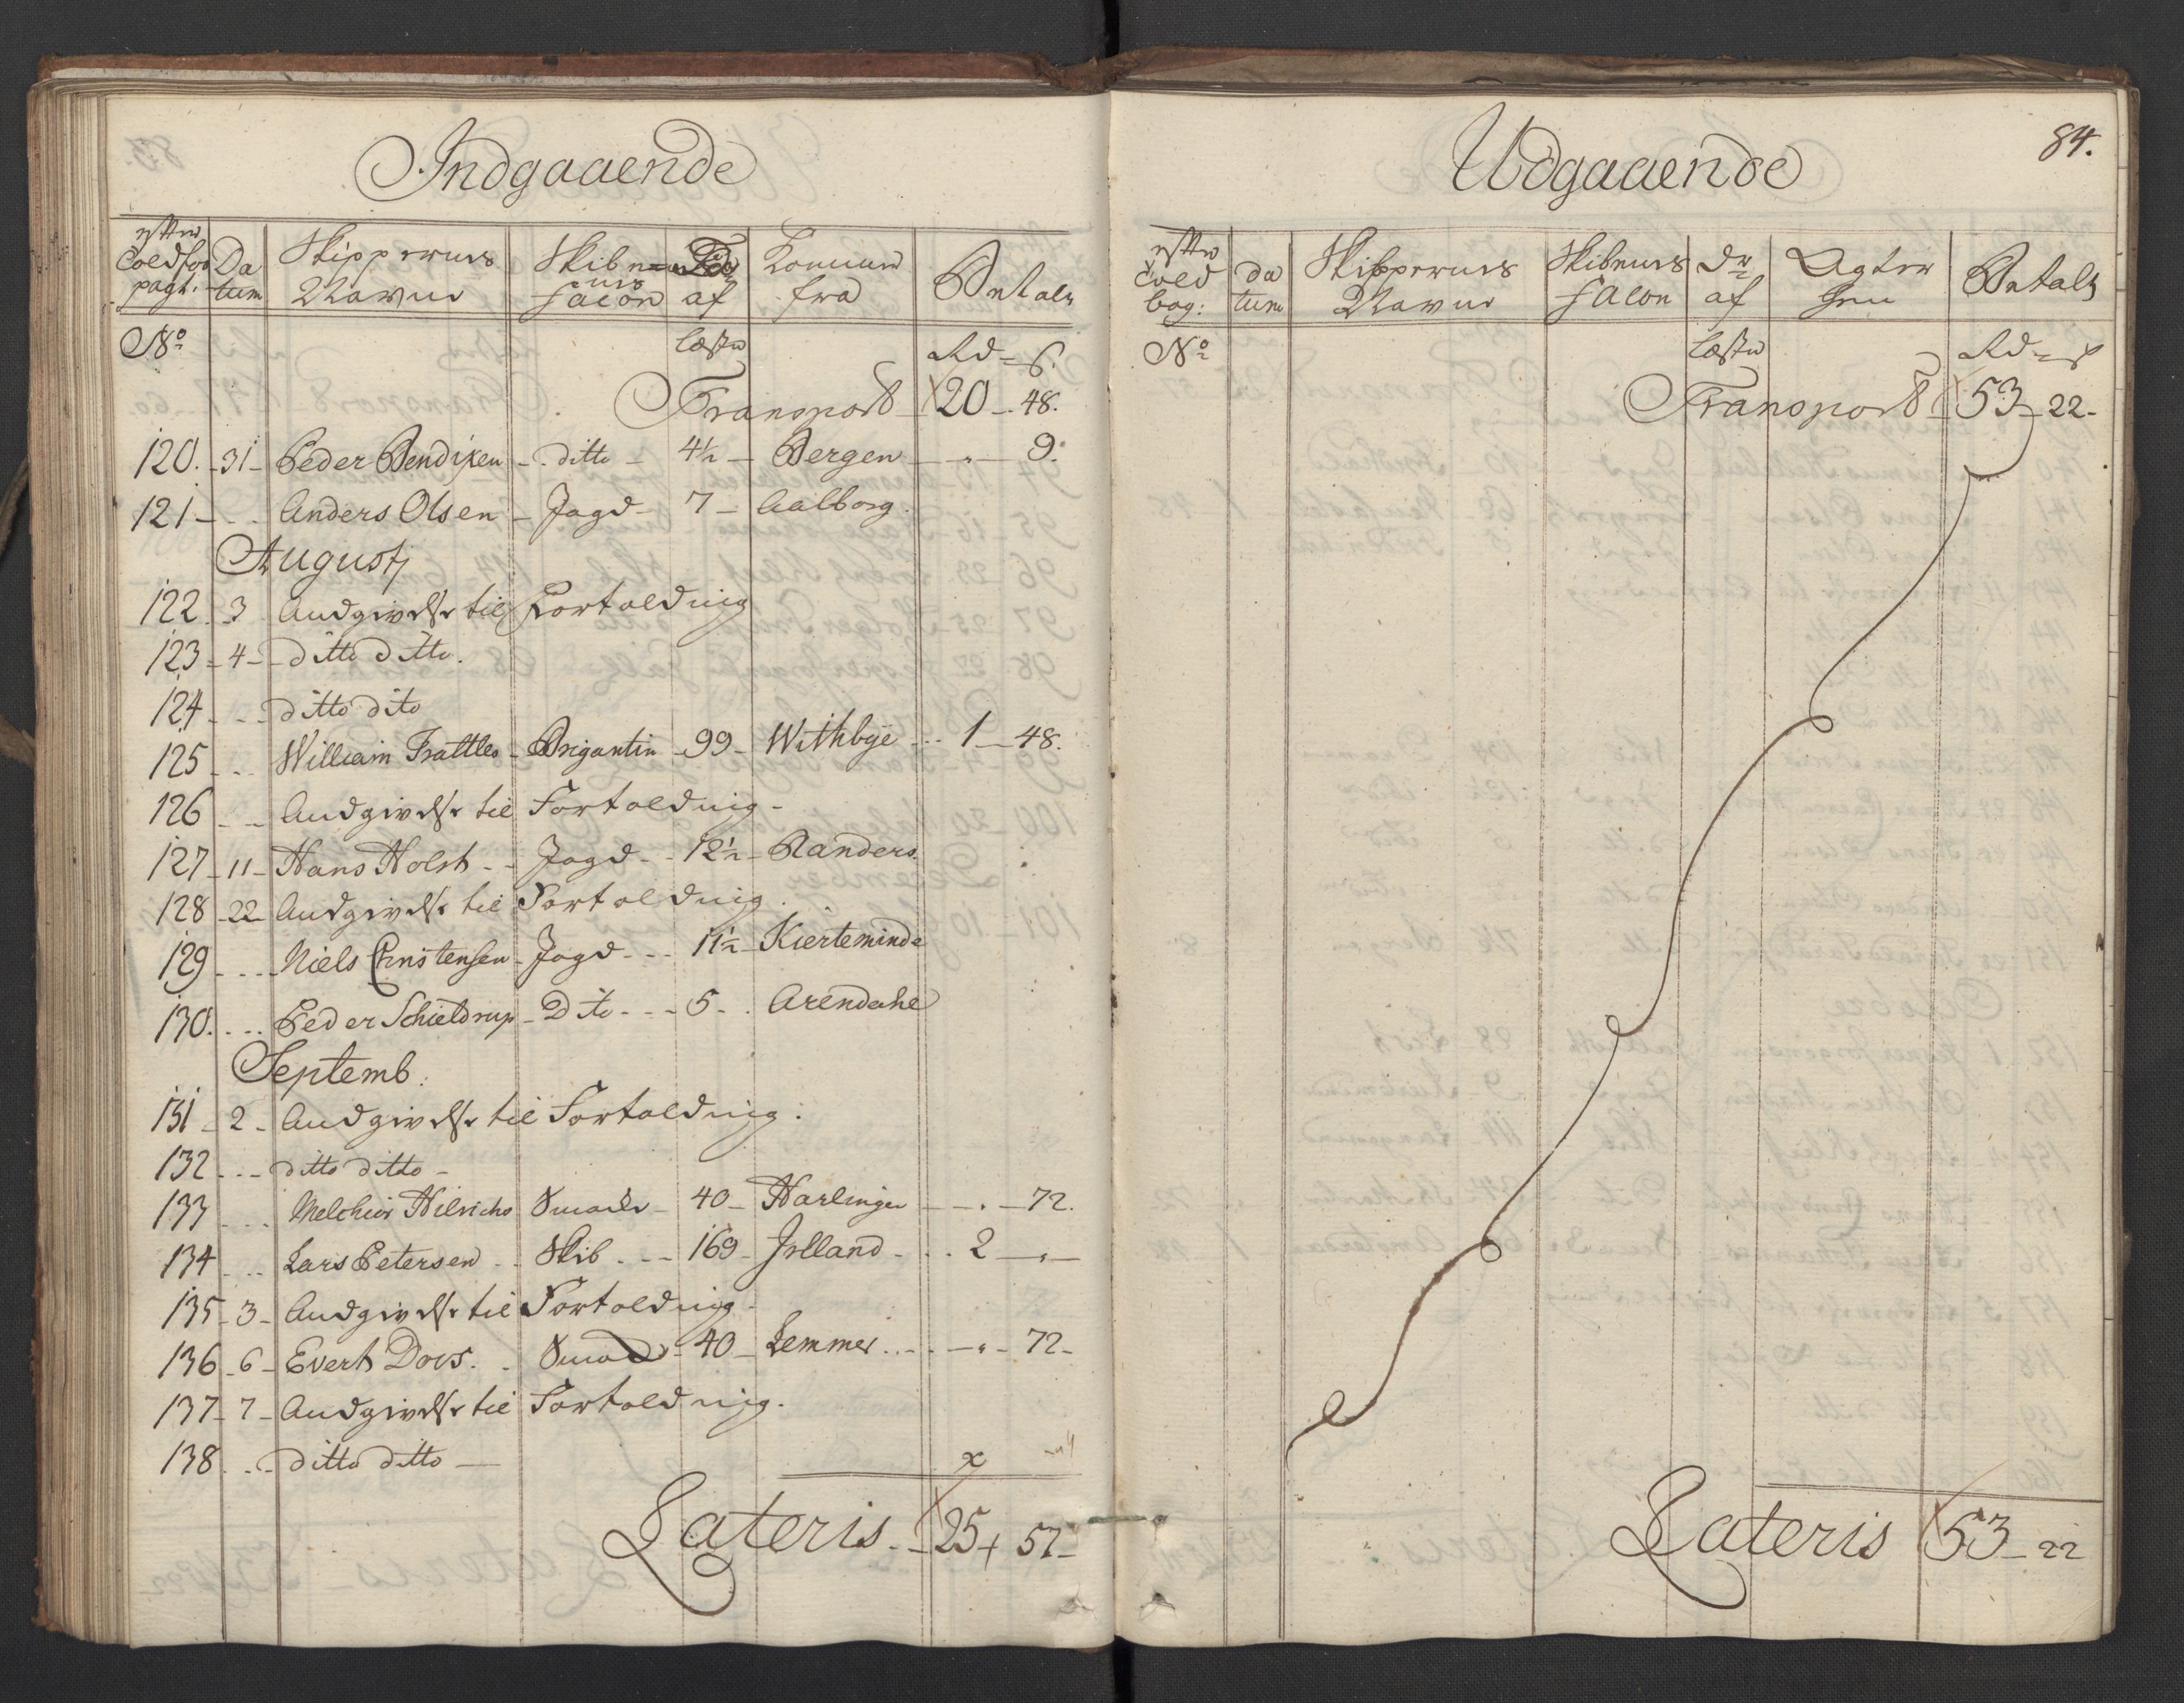 Indgaaende
efter Toldfor pagt: | Da tum | Skippernes Navne | Skibenes facon | af | Kommen fra | Betalt
No | læster | Rd - ß.
Transport 20 - 48.
120. - 31 - Peder Bendixen - ditto - 4½ - Bergen - " - 9.
121 - - Anders Olsen - Jagd - 7 - Aalborg.
Augustj
122. 3 Andgivelse til Fortoldning
123 - 4 - ditto ditto.
124 - - ditto dito
125 - - William Frattles - Brigantin - 99 - Withbye - 1 - 48.
126 - - Andgivelse til Fortoldning -
127 - 11 - Hans Holst - Jagd - 12½ - Randers.
128 - 22 Andgivelse til Fortoldning.
129 - - Niels Christensen - Jagd - 11½ - Kierteminde
130. - - Peder Schieldrup - Dito - 5 - Arendahl
Septemb:
131 - 2 - Andgivelse til Fortoldning.
132 - - ditto ditto -
133 - - Melchior Hilrichs Smacke - 40 - Harlingen - " - 72.
134 - - Lars Petersen - Skib - 169 - Irlland - 2 - " -
135 - 3 - Andgivelse til Fortoldning -
136 - 6 - Evert Doos. - Smack - 40 - Lemmer - " - 72 -
137 - 7 - Andgivelse til Fortoldning.
138 - - ditto ditto -
Lateris - 25 + 57 -
84.
Udgaaende
efter Told bog: | da tum | Skippernes Navne | Skibenes facon | Dr af | Agter hen | Betalt
No | læster | Rd - ß
Transport 53 - 22 -
Lateris 53 - 22